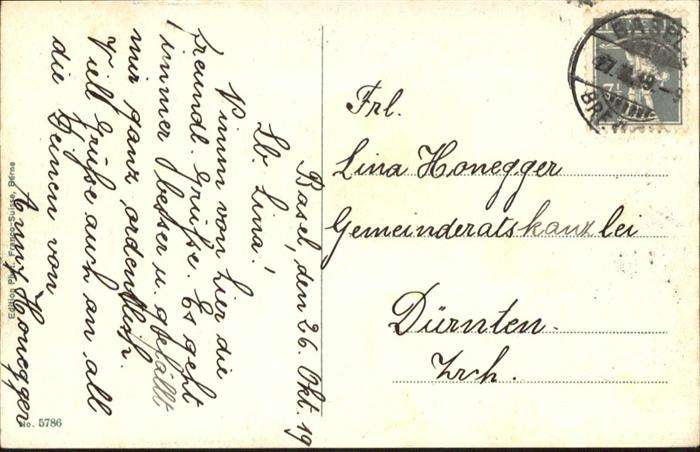 Basel, den 26. Okt. 19
Lb. Lina!
Nimm von hier die
freundl. Grüsse. Es geht
immer besser u. gefällt
mir ganz ordentlich.
Viell Grüsse auch an all
die Deinen von
Anny Honegger
Frl.
Lina Honegger
Gemeinderatskanzlei
Dürnten.
Zrch.
BASEL
BRIEF
Edition Phot. Franco-Suisse, Berne
No. 5786